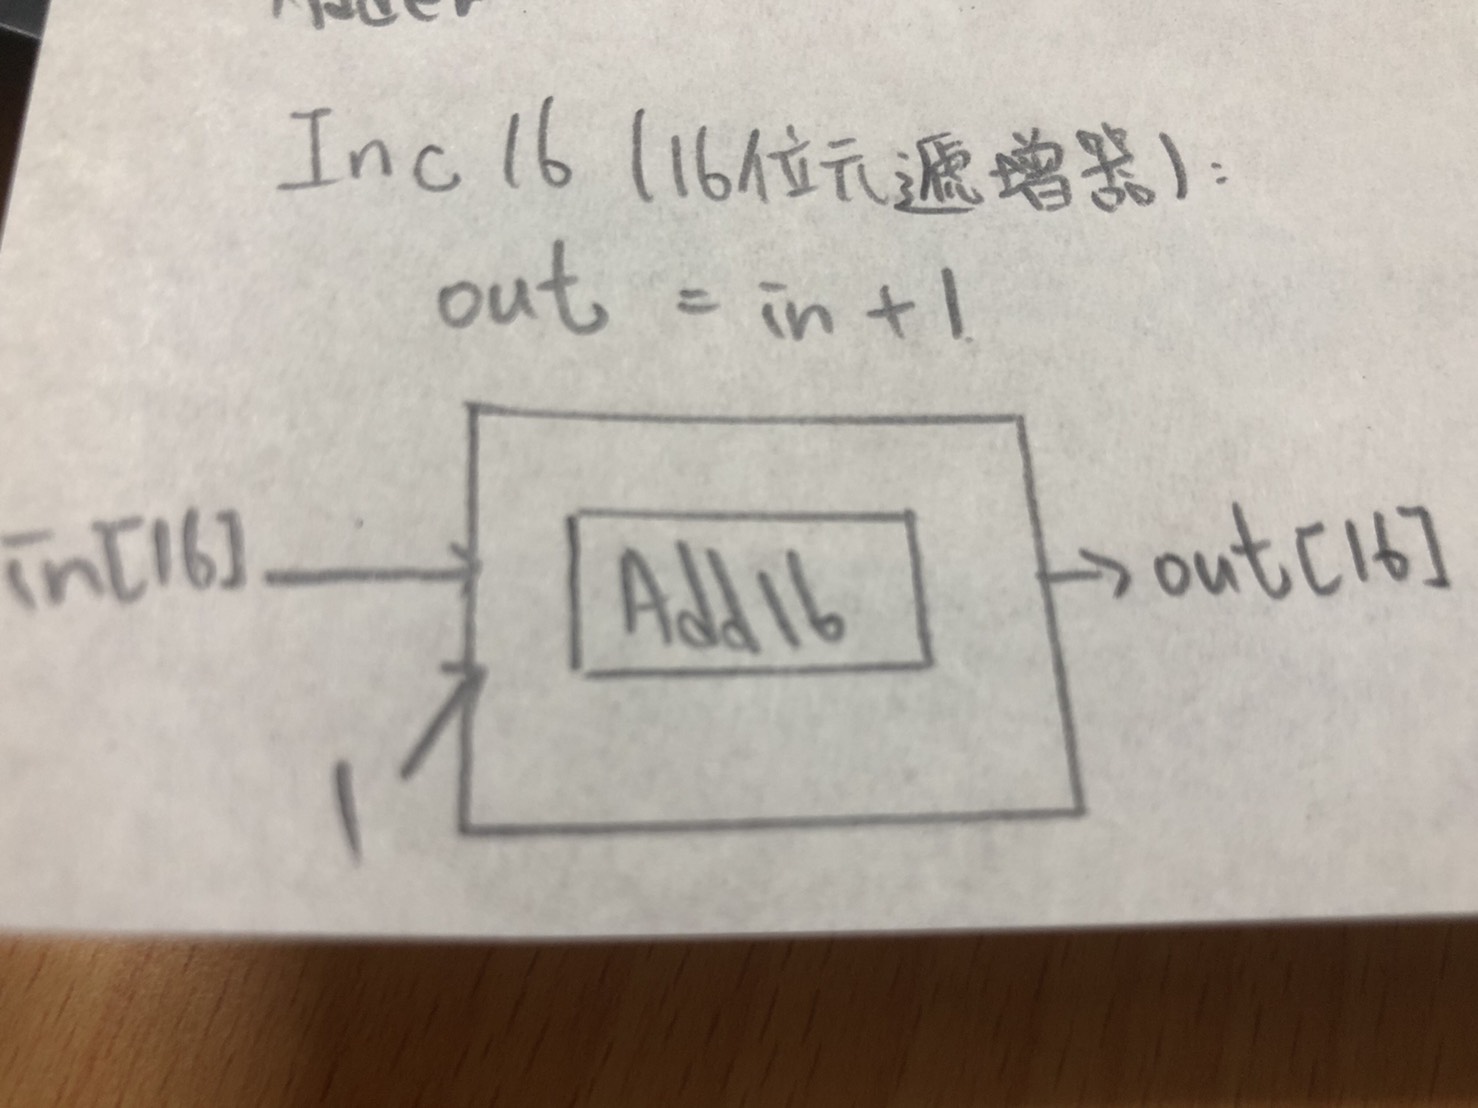 Inc 16 (16位元遞增器):
out = in + 1
in[16]
Add16
out[16]
1